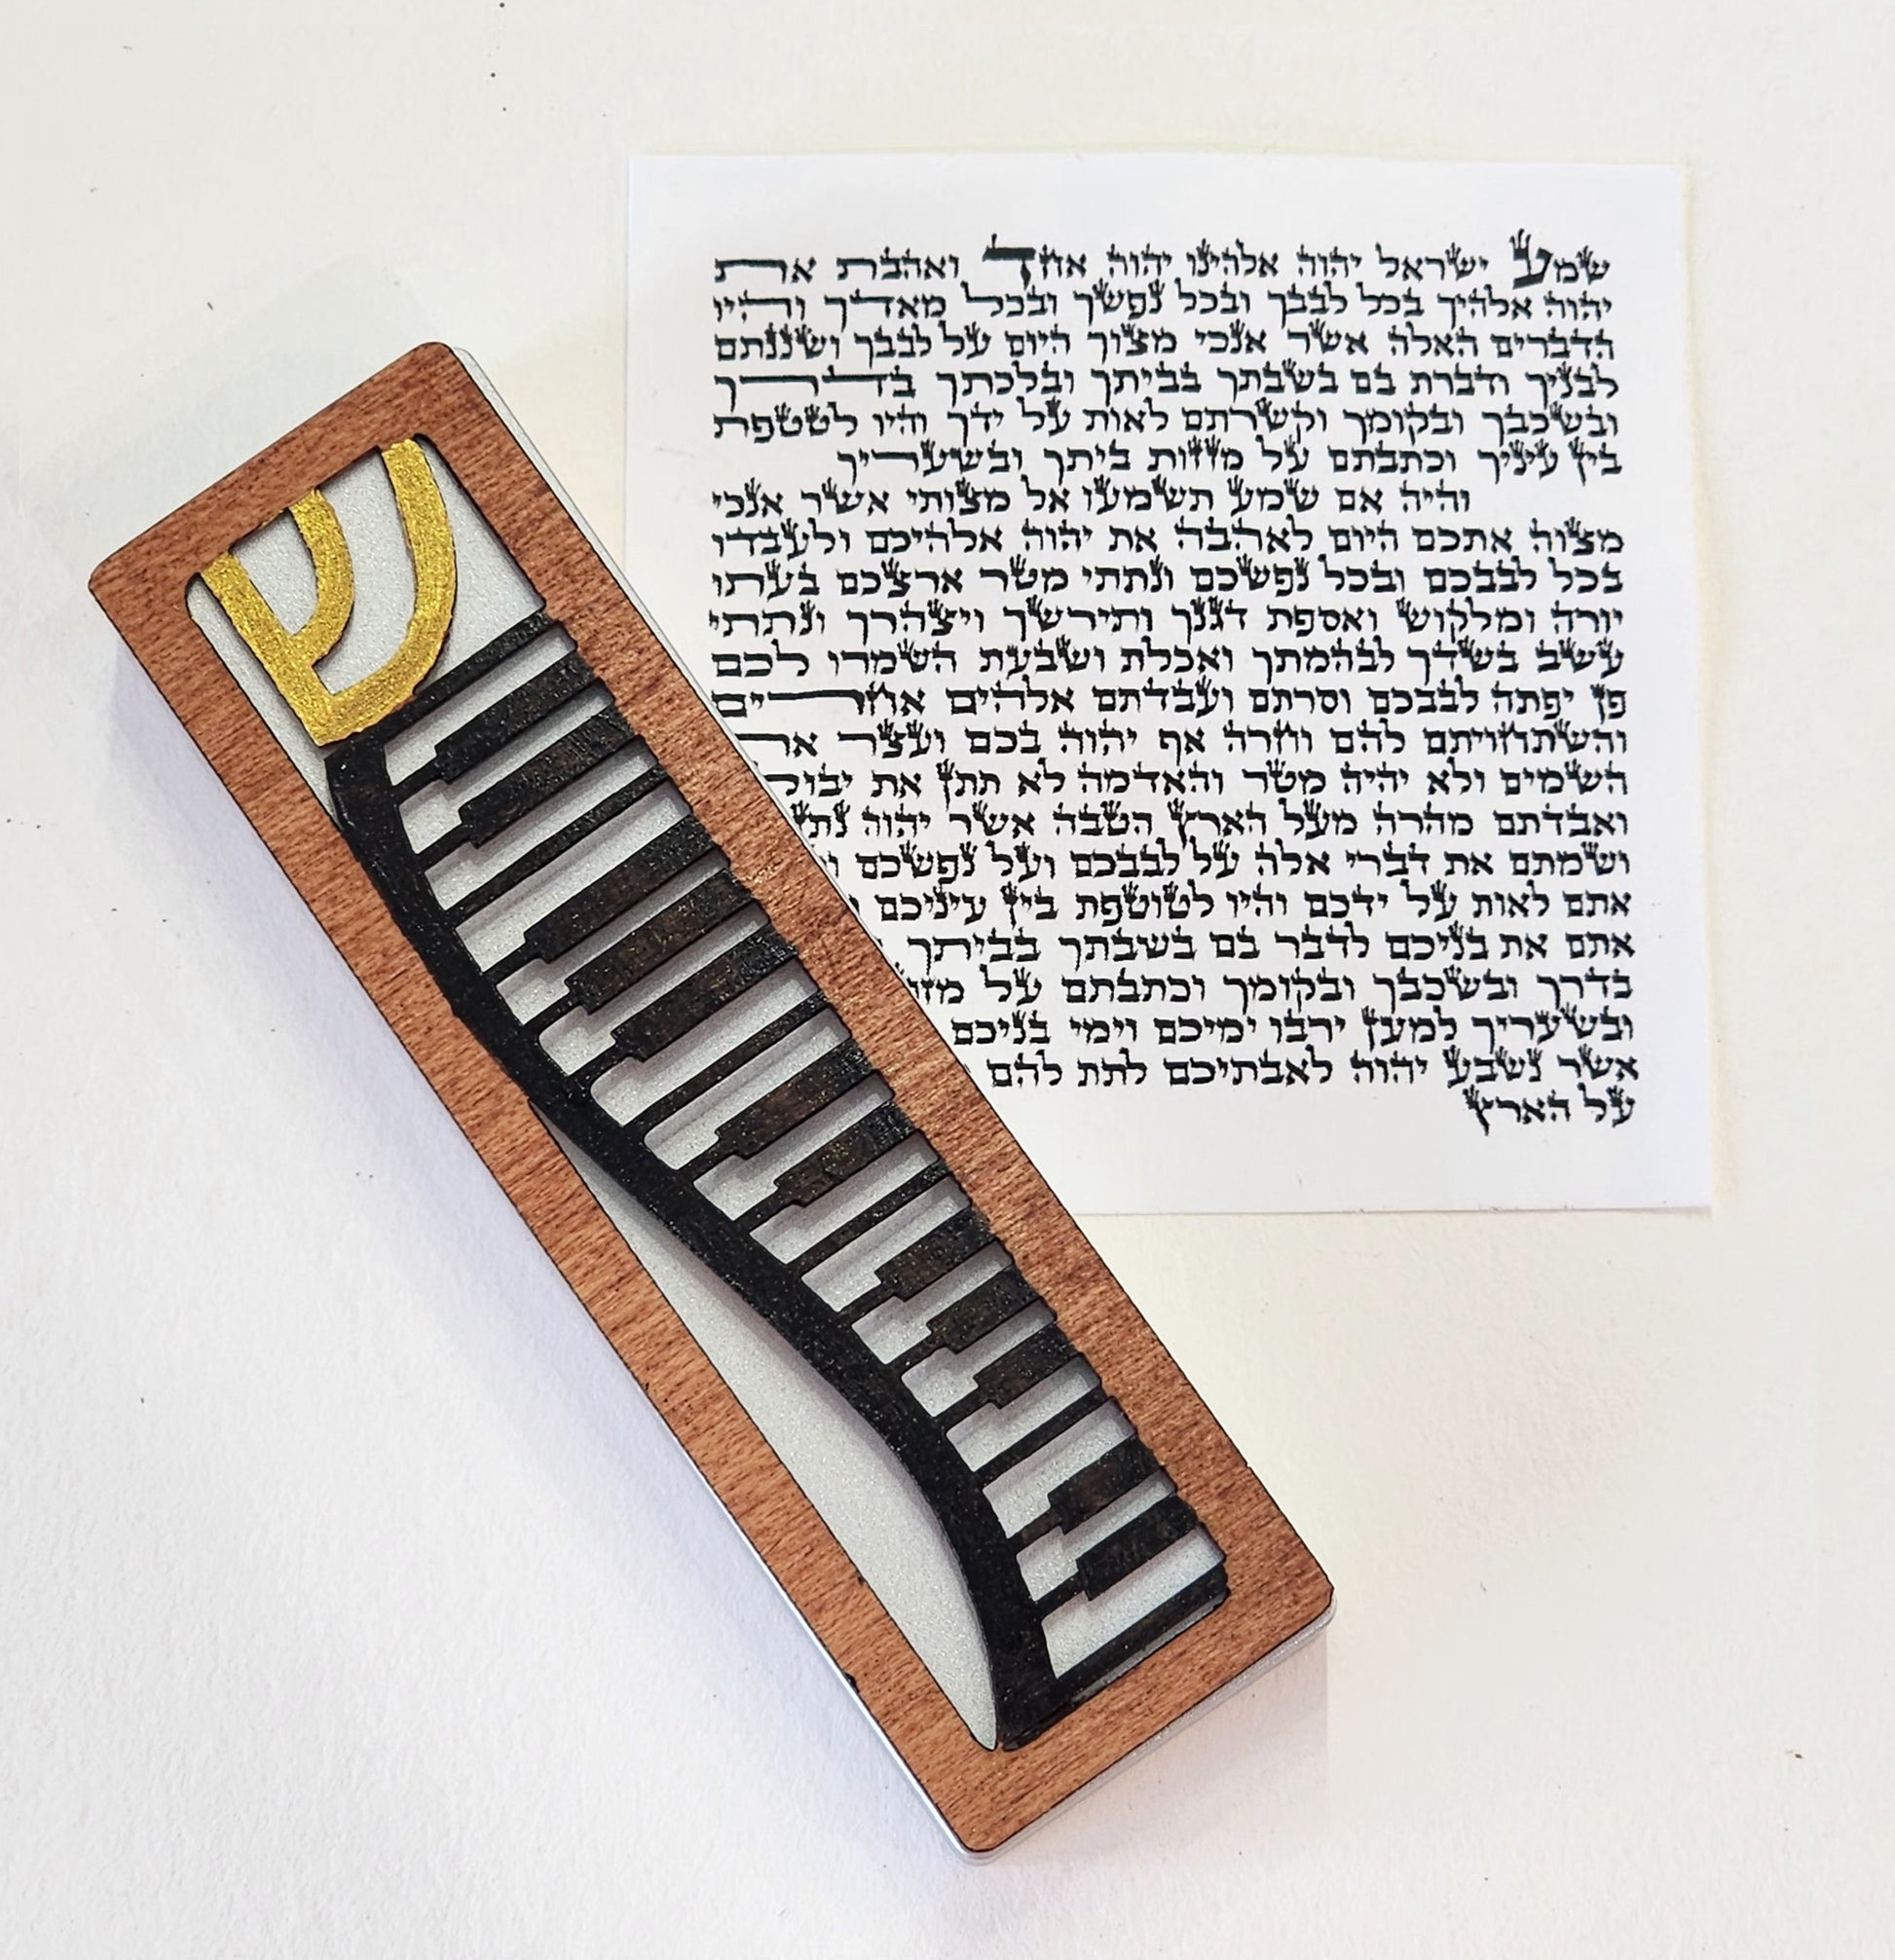 ש
שמע ישראל יהוה אלהינו יהוה אחד ואהבת את
יהוה אלהיך בכל לבבך ובכל נפשך ובכל מאדך והיו
הדברים האלה אשר אנכי מצוך היום על לבבך ושננתם
לבניך ודברת בם בשבתך בביתך ובלכתך בדרך
ובשכבך ובקומך וקשרתם לאות על ידך והיו לטטפת
בין עיניך וכתבתם על מזזות ביתך ובשעריך
והיה אם שמע תשמעו אל מצותי אשר אנכי
מצוה אתכם היום לאהבה את יהוה אלהיכם ולעבדו
בכל לבבכם ובכל נפשכם ונתתי מטר ארצכם בעתו
יורה ומלקוש ואספת דגנך ותירשך ויצהרך ונתתי
עשב בשדך לבהמתך ואכלת ושבעת השמרו לכם
פן יפתה לבבכם וסרתם ועבדתם אלהים אחרים
והשתחויתם להם וחרה אף יהוה בכם ועצר
השמים ולא יהיה מטר והאדמה לא תתן את
ואבדתם מהרה מעל הארץ הטבה אשר יהוה
ושמתם את דברי אלה על לבבכם ועל נפשכם
אתם לאות על ידכם והיו לטוטפת בין עיניכם
אתם את בניכם לדבר בם בשבתך בביתך
בדרך ובשכבך ובקומך וכתבתם על
ובשעריך למען ירבו ימיכם וימי בניכם
אשר נשבע יהוה לאבתיכם לתת להם
על הארץ